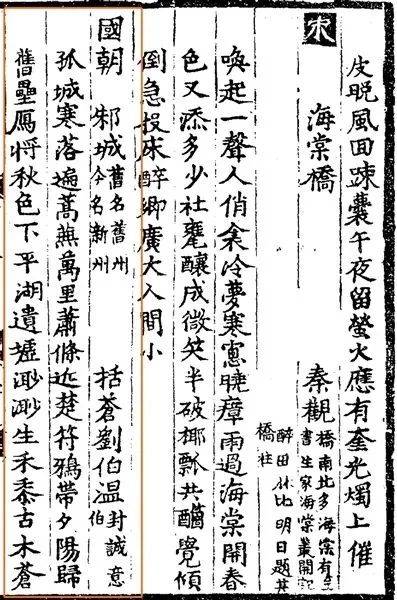 皮晩風回踈囊午夜留螢火應有奎光燭上催
宋　海棠橋　秦觀
橋南北多海棠有
書生家海棠叢開
醉明日題其
橋柱
喚起一聲人俏衾冷夢寒窓曉瘴雨過海棠開春
色又添多少社甕釀成微笑半破椰瓢共覺傾
倒急投床醉鄉廣大人間小
國朝　邾城　舊名舊州
今名新州　括蒼劉伯温　封誠意
伯
孤城寒落遍蒿蕪萬里蕭條近楚符鴉帶夕陽歸
舊壘鴈將秋色下平湖遺壚渺渺生禾黍古木蒼